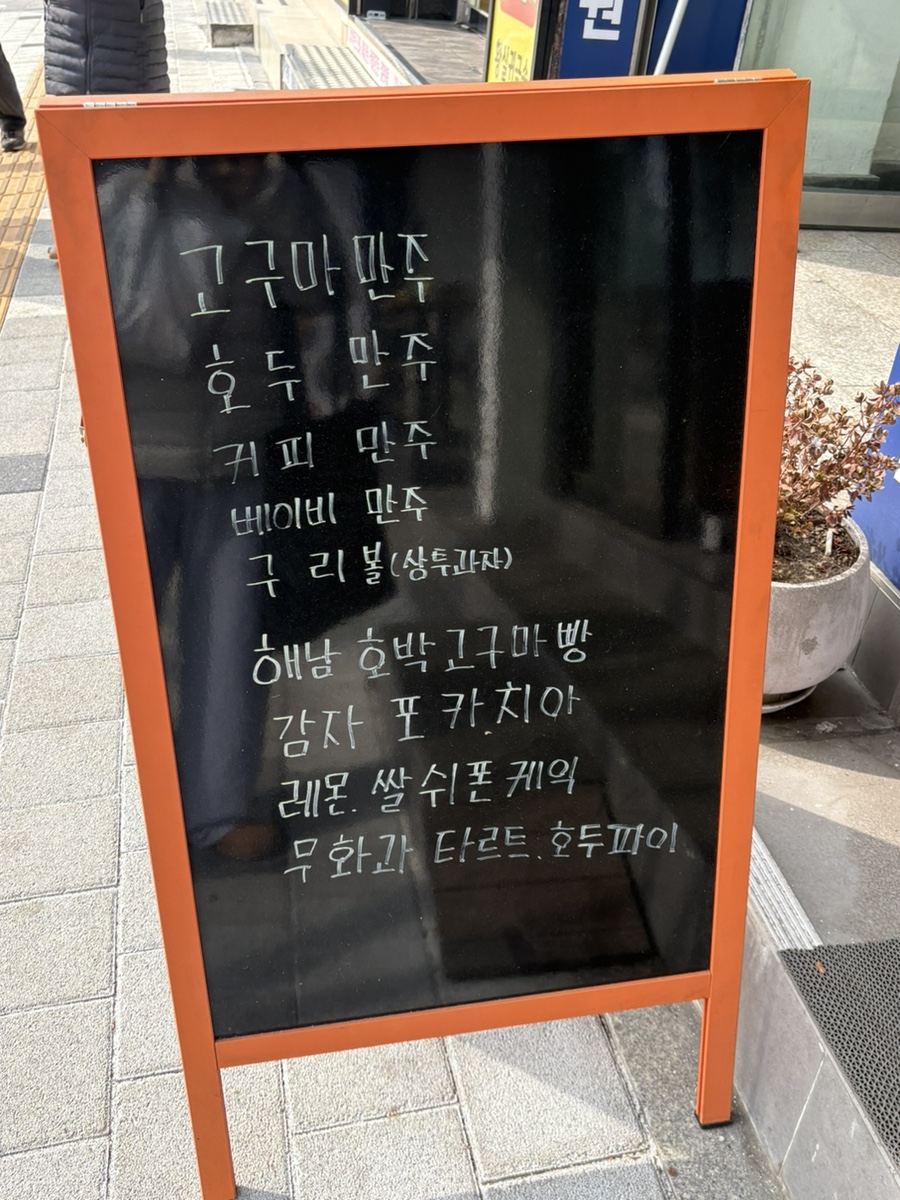 원
고구마 만주
호두 만주
커피 만주
베이비 만주
구리볼(상투과자)
해남 호박고구마빵
감자 포카치아
레몬. 쌀쉬폰케익
무화과 타르트. 호두파이